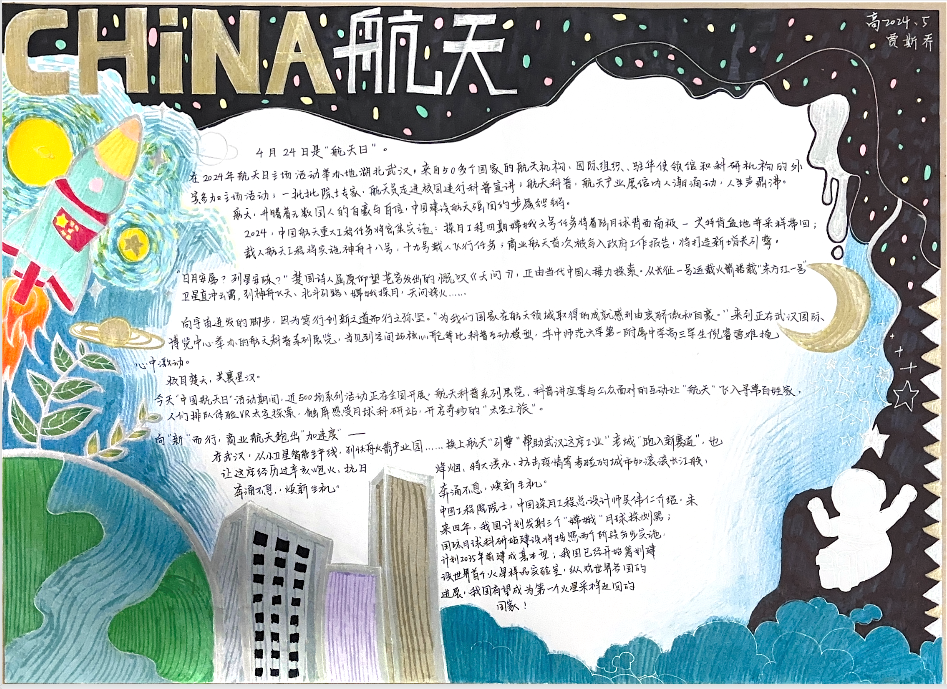 CHiNA航天
高2024.5
贾斯乔
4月24日是"航天日"。
在2024年航天日主场活动举办地湖北武汉，来自50多个国家的航天机构、国际组织、驻华使领馆和科研机构的外
宾参加主场活动；一批批院士专家、航天员走进校园进行科普宣讲；航天科普、航天产业展馆内人潮涌动，人声鼎沸。
航天，升腾着无数国人的自豪与自信，中国建设航天强国的步履铿锵。
2024，中国航天重大工程任务将密集实施：探月工程四期嫦娥六号任务将着陆月球背面南极—艾特肯盆地带采样带回；
载人航天工程将实施神舟十八号、十九号载人飞行任务；商业航天首次被写入政府工作报告，将打造新增长引擎。
"日月安属？列星安陈？"楚国诗人屈原仰望苍穹发出的慨叹《天问》，正由当代中国人接力探索。从长征一号运载火箭搭载"东方红一号"
卫星直冲云霄，到神舟飞天、北斗引路、嫦娥探月、天问探火……
向宇宙进发的脚步，因为笃行创新之道而行之弥坚。"为我们国家在航天领域取得的成就感到由衷骄傲和自豪。"来到正在武汉国际
博览中心举办的航天科普系列展览，当见到空间站核心舱等比科普互动模型，华中师范大学第一附属中学高三学生倪睿骞难掩
心中激动。
极目楚天，共襄星汉。
今天"中国航天日"活动期间，近500场系列活动正在全国开展。航天科普系列展览、科普讲座等与公众面对面互动让"航天"飞入寻常百姓家，
人们排队体验VR太空探索、触屏感受月球科研站，开启奇妙的"太空之旅"。
向"新"而行，商业航天跑出"加速度"——
在武汉，从小卫星智能生产线，到快舟火箭产业园……换上航天"引擎"帮助武汉这座工业"老城"驶入新赛道"，也
让这座经历过辛亥炮火、抗日
烽烟、特大洪水、抗击疫情等考验的城市如滚滚长江般，
奔涌不息，焕新生机。
奔涌不息，焕新生机。
中国工程院院士，中国探月工程总设计师吴伟仁介绍，未
来四年，我国计划发射三个"嫦娥"月球探测器；
国际月球科研站建设将按照两个阶段分步实施，
计划2035年前建成基本型；我国已经开始筹划建
设世界首个火星样品实验室，纵观世界各国的
进展，我国有望成为第一个火星采样返回的
国家！